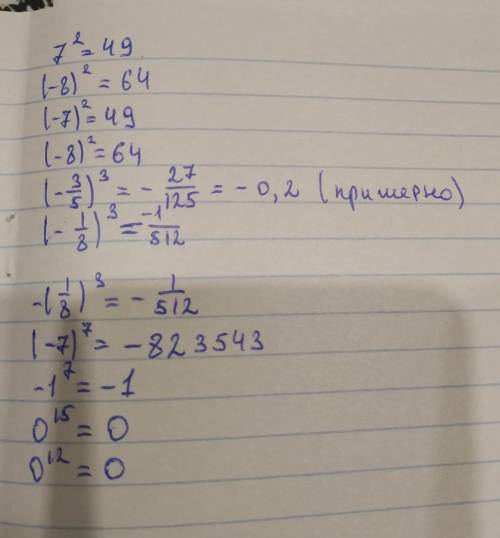 7² = 49
(-8)² = 64
(-7)² = 49
(-8)² = 64
(-3/5)³ = - 27/125 = - 0,2 (примерно)
(-1/8)³ = -1/512
-(1/8)³ = - 1/512
(-7)⁷ = -823543
-1⁷ = -1
0¹⁵ = 0
0¹² = 0